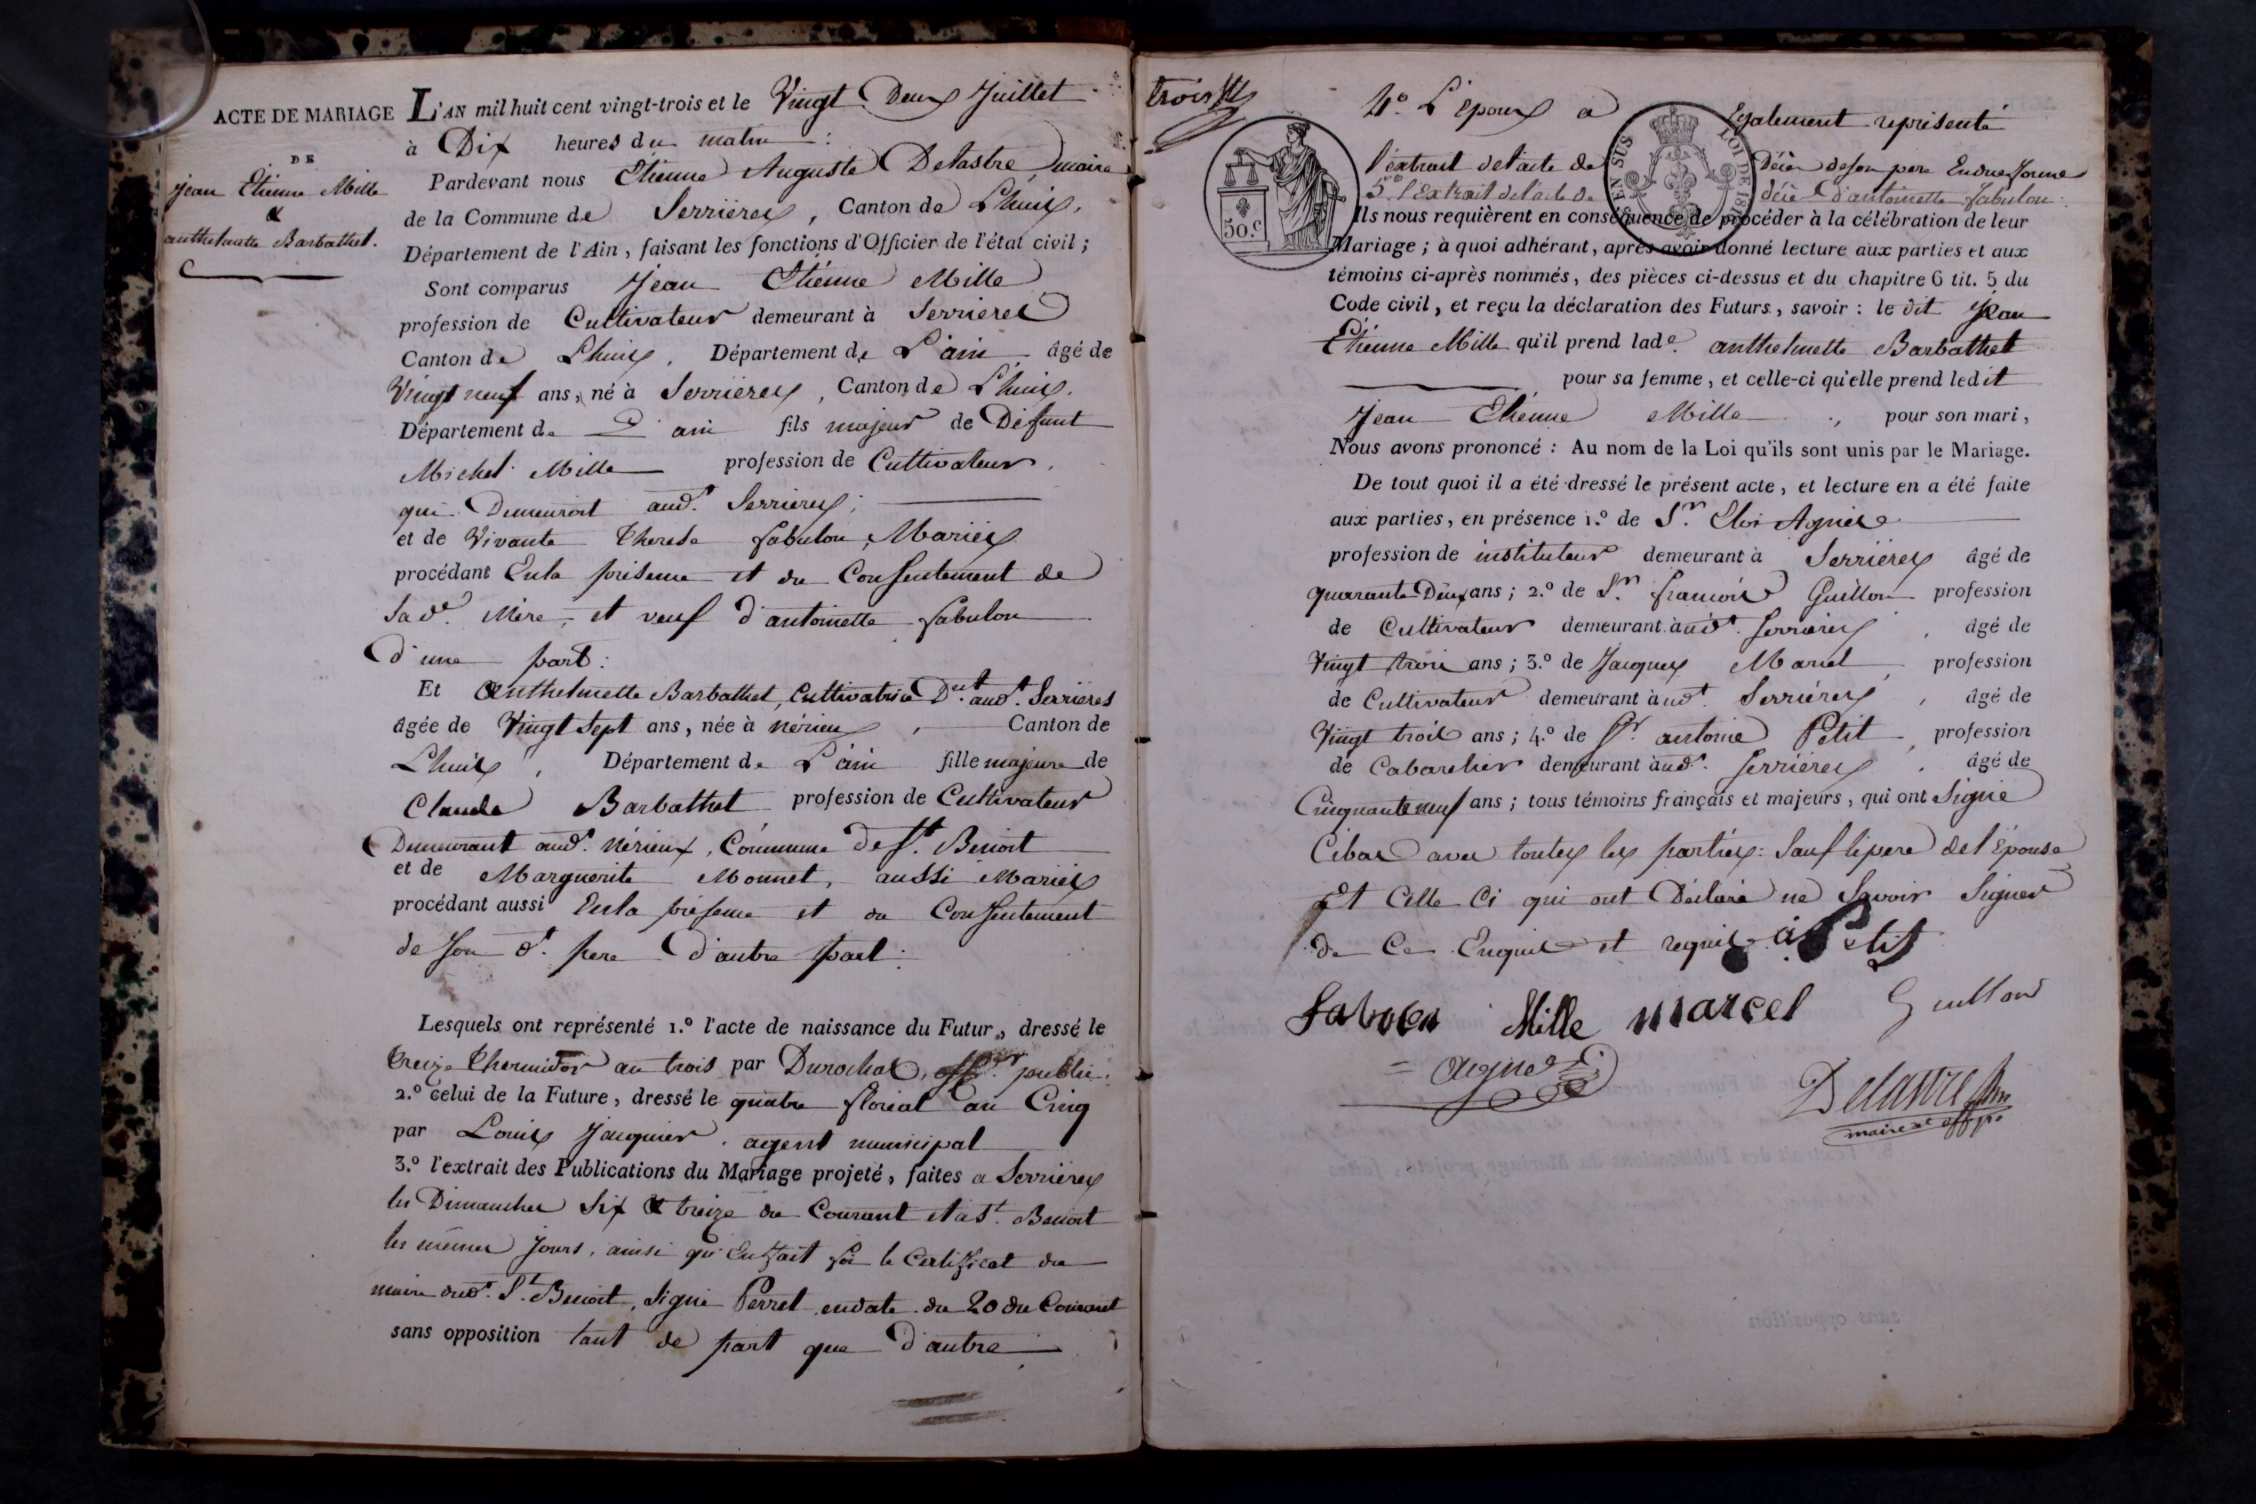 ACTE DE MARIAGE
DE
jean Etienne Mille
&
anthelmette Barbathet.
L'AN mil huit cent vingt-trois et le Vingt Deux Juillet
à Dix heures du matin :
Pardevant nous Etienne Auguste Delastre maire
de la Commune de Serrieres, Canton de Lhuis,
Département de l'Ain, faisant les fonctions d'Officier de l'état civil ;
Sont comparus Jean Etienne Mille
profession de Cultivateur demeurant à Serrieres
Canton de Lhuis, Département de L'ain âgé de
Vingt neuf ans, né à Serrieres, Canton de Lhuis.
Département de L'ain fils majeur de Défunt
Michel Mille profession de Cultivateur,
qui Demeuroit aud.t Serrieres,
et de Vivante Therese fabulon, Mariés
procédant En la présence et du Consentement de
Sa d.e Mere, et veuf d'antoinette fabulon
d'une part :
Et Anthelmette Barbathet, Cultivatrice D.nt aud.t Serrieres
âgée de Vingt Sept ans, née à Nérieu, Canton de
Lhuis, Département de L'ain fille majeure de
Claude Barbathet profession de Cultivateur
Demeurant aud.t Nérieux, Commune de S.t Benoit
et de Marguerite Monnet, aussi Mariés
procédant aussi En la présence et du Consentement
de Son d.t pere D'autre part :
Lesquels ont représenté 1.º l'acte de naissance du Futur, dressé le
treize thermidor an trois par Durochat, off.er public.
2.º celui de la Future, dressé le quatre floréal an Cinq
par Louis Jacquier, agent municipal
3.º l'extrait des Publications du Mariage projeté, faites a Serrieres
les Dimanches Six & treize du Courant et a S.t Benoit
les mêmes Jours, ainsi qu'en fait foi le Certificat du
maire dud.t S.t Benoit, Signé Perret en date du 20 du Courant
sans opposition tant de part que d'autre
trois
4.º L'Epoux a Egalement représenté
l'extrait de l'acte de Décès de Son pere En due forme
5.º l'Extrait de l'acte de décès d'antoinette fabulon.
50.c
EN SUS
LOI DE 181
Ils nous requièrent en conséquence de procéder à la célébration de leur
Mariage ; à quoi adhérant, après avoir donné lecture aux parties et aux
témoins ci-après nommés, des pièces ci-dessus et du chapitre 6 tit. 5 du
Code civil, et reçu la déclaration des Futurs, savoir : le dit Jean
Etienne Mille qu'il prend lad.e anthelmette Barbathet
pour sa femme, et celle-ci qu'elle prend ledit
Jean Etienne Mille, pour son mari,
Nous avons prononcé : Au nom de la Loi qu'ils sont unis par le Mariage.
De tout quoi il a été dressé le présent acte, et lecture en a été faite
aux parties, en présence 1.º de S.r Eloi Agniel
profession de instituteur demeurant à Serrieres âgé de
quarante Deux ans ; 2.º de S.r françois Guillon profession
de Cultivateur demeurant à ud.t Serrieres, âgé de
Vingt trois ans ; 3.º de Jacques Marcel, profession
de Cultivateur demeurant à ud.t Serrieres, âgé de
Vingt trois ans ; 4.º de S.r antoine Petit, profession
de Cabaretier demeurant à ud.t Serrieres, âgé de
Cinquante neuf ans ; tous témoins français et majeurs, qui ont Signé
Cibas avec toutes les parties : Sauf le pere de l'Epouse
Et Celle Ci qui ont Déclaré ne Savoir Signer
de Ce Enquis et requis. a Petit
Mille marcel Guillon
Delastre
maire et off. p.